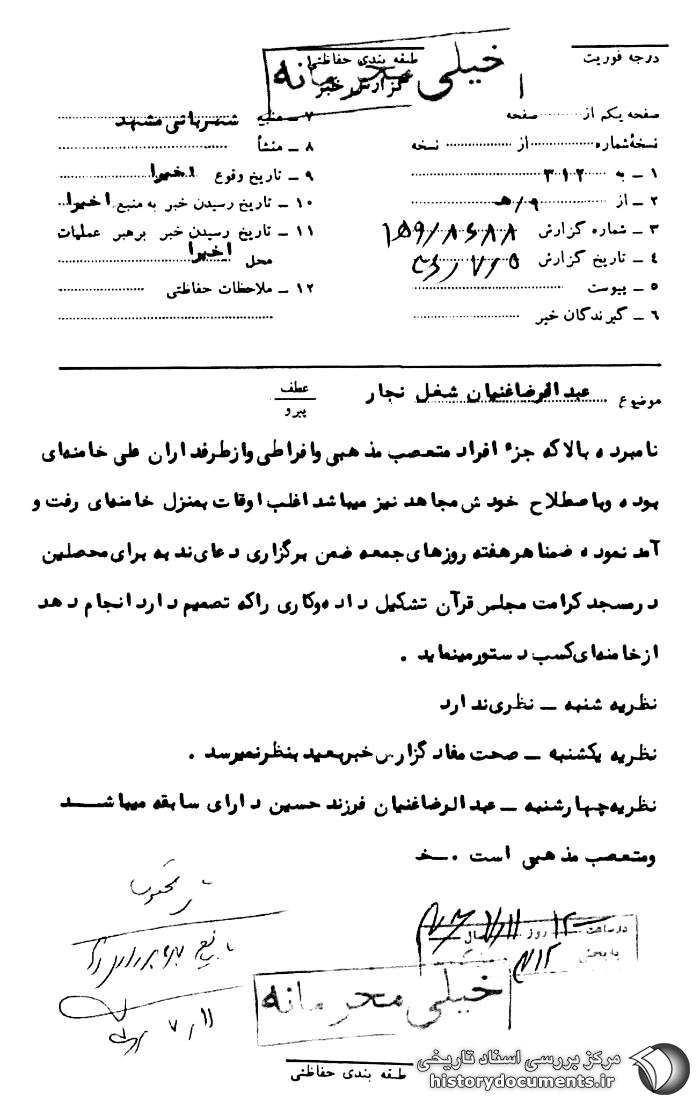 درجه فوریت
طبقه بندی حفاظتی
خیلی محرمانه
گزارش خبر
صفحه یکم از ........ صفحه
نسخهٔ شماره ........ از ........ نسخه
۱ ـ به ۳۱۲
۲ ـ از ۹/هـ
۳ ـ شماره گزارش ۱۵۹/۸۶۸۸
۴ ـ تاریخ گزارش
۵ ـ پیوست
۶ ـ گیرندگان خبر
۷ ـ منبع شهربانی مشهد
۸ ـ منشأ
۹ ـ تاریخ وقوع اخیرا
۱۰ ـ تاریخ رسیدن خبر به منبع اخیرا
۱۱ ـ تاریخ رسیدن خبر برهبر عملیات
محل اخیرا
۱۲ ـ ملاحظات حفاظتی
موضوع عبدالرضاغنیان شغل نجار
عطف
پیرو
نامبرده بالاکه جزء افراد متعصب مذهبی وافراطی وازطرفداران علی خامنه‌ای
بوده وباصطلاح خودش مجاهد نیز میباشد اغلب اوقات بمنزل خامنه‌ای رفت و
آمد نموده ضمنا هرهفته روزهای جمعه ضمن برگزاری دعای ندبه برای محصلین
درمسجد کرامت مجلس قرآن تشکیل داده وکاری راکه تصمیم دارد انجام دهد
ازخامنه‌ای کسب دستورمینماید .
نظریه شنبه ـ نظری ندارد
نظریه یکشنبه ـ صحت مفاد گزارش خبربعید بنظرنمیرسد .
نظریه چهارشنبه ـ عبدالرضاغنیان فرزند حسین دارای سابقه میباشـــد
ومتعصب مذهبی است . ـخ
در ساعت ۱۲ روز ۷/۱۱ سال
به بخش ۳۱۲
۷/۱۱
خیلی محرمانه
طبقه بندی حفاظتی
مرکز بررسی اسناد تاریخی
historydocuments.ir